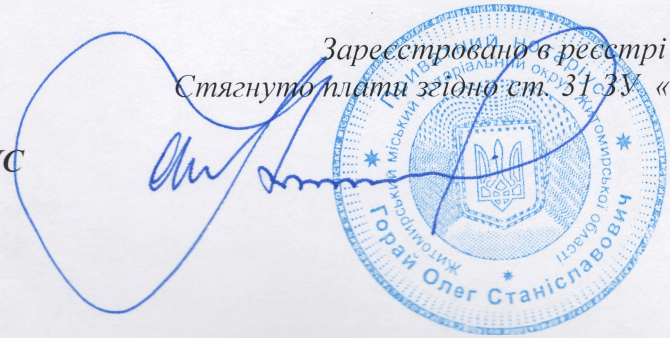 Зареєстровано в реєстрі
Стягнуто плати згідно ст. 31 ЗУ «
УС
Приватний нотаріус
Житомирський міський нотаріальний округ Житомирської області
Горай Олег Станіславович